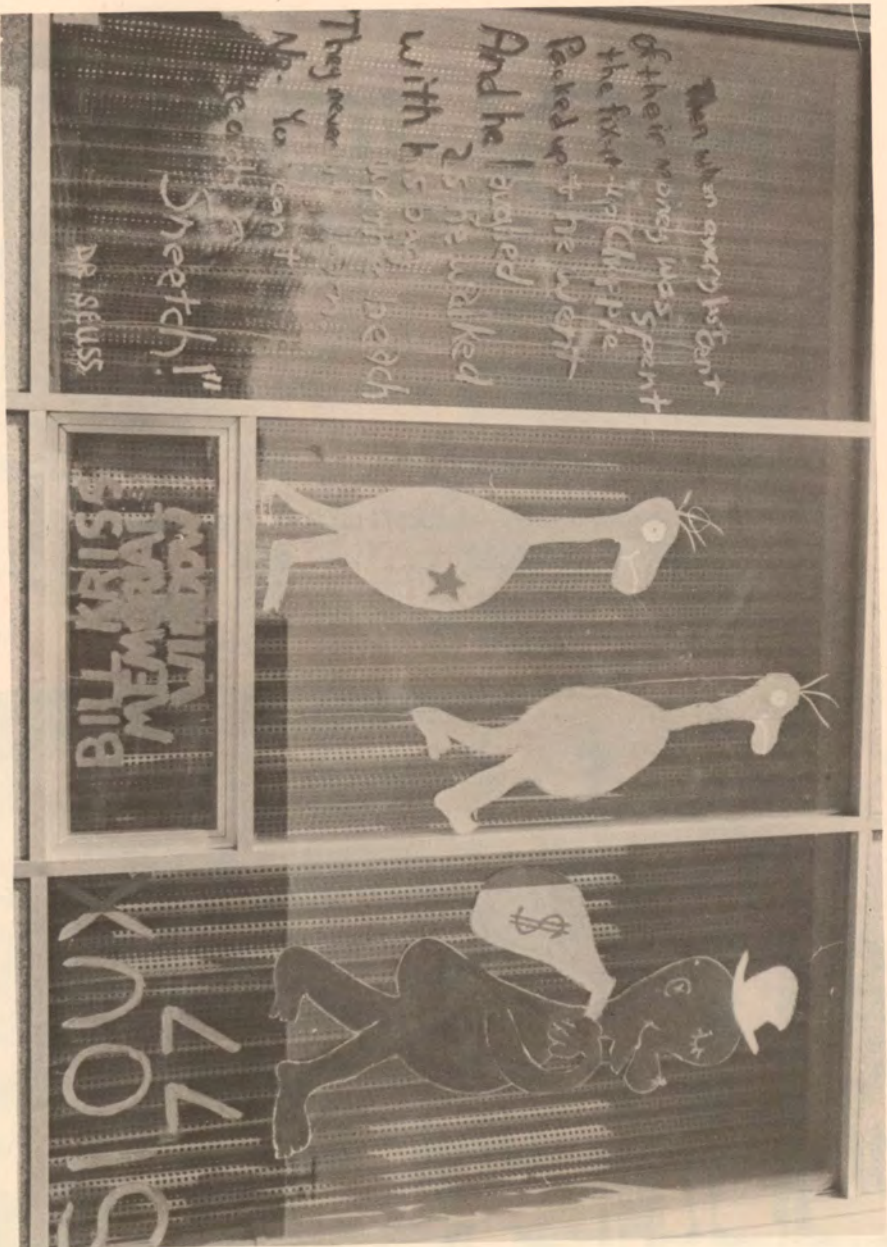 Then when every last cent
of their money was spent
the fix-it-up Chappie
Packed up & he went
And he laughed
as he walked
with his car
up the beach
They never learn
No. You can't
teach a
Sneetch!"
DR. SEUSS
BILL KRISS
MEMORIAL
WINDOW
$
SIOUX
77